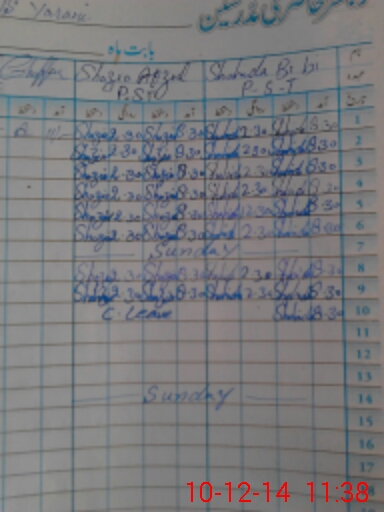 Yarani
رجسٹر حاضری مدرسین
بابت ماہ
Ghaffar Shazia Afzal Shahida Bi bi
P.S.T P-S-T
1 Shazia 2.30 Shazia 8.30 Shahida 2.30 Shahida 8.30
2 Shazia 2.30 Shazia 8.30 Shahida 2.30 Shahida 8.30
3 Shazia 2.30 Shazia 8.30 Shahida 2.30 Shahida 8.30
4 Shazia 2.30 Shazia 8.30 Shahida 2.30 Shahida 8.30
5 Shazia 2.30 Shazia 8.30 Shahida 2.30 Shahida 8.30
6 Shazia 2.30 Shazia 8.30 Shahida 2.30 Shahida 8.30
7 Sunday
8 Shazia 2.30 Shazia 8.30 Shahida 2.30 Shahida 8.30
9 Shazia 2.30 Shazia 8.30 Shahida 2.30 Shahida 8.30
10 C. Leave Shahida 8.30
11
12
13
14 Sunday
15
16
17
10-12-14 11:38